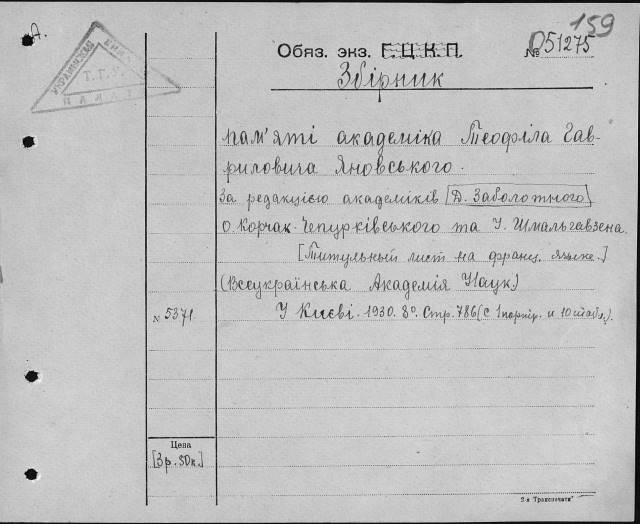 159
А.
Обяз. экз. Г.Ц.К.П. № 051275
Збірник
УКРАИНСКАЯ
Т.Г.У.
ПАЛАТА
пам'яті академіка Теофіла Гав-
риловича Яновського.
За редакцією академіків [Д. Заболотного]
О. Корчак-Чепурківського та І. Шмальгавзена.
[Титульный лист на франц. языке.]
(Всеукраїнська Академія Наук)
№ 5371. У Києві. 1930. 8°. Стр. 786 (с 1 портр. и 10 табл.).
Цена
[3 р. 50 к.]
2-я Транспечати"